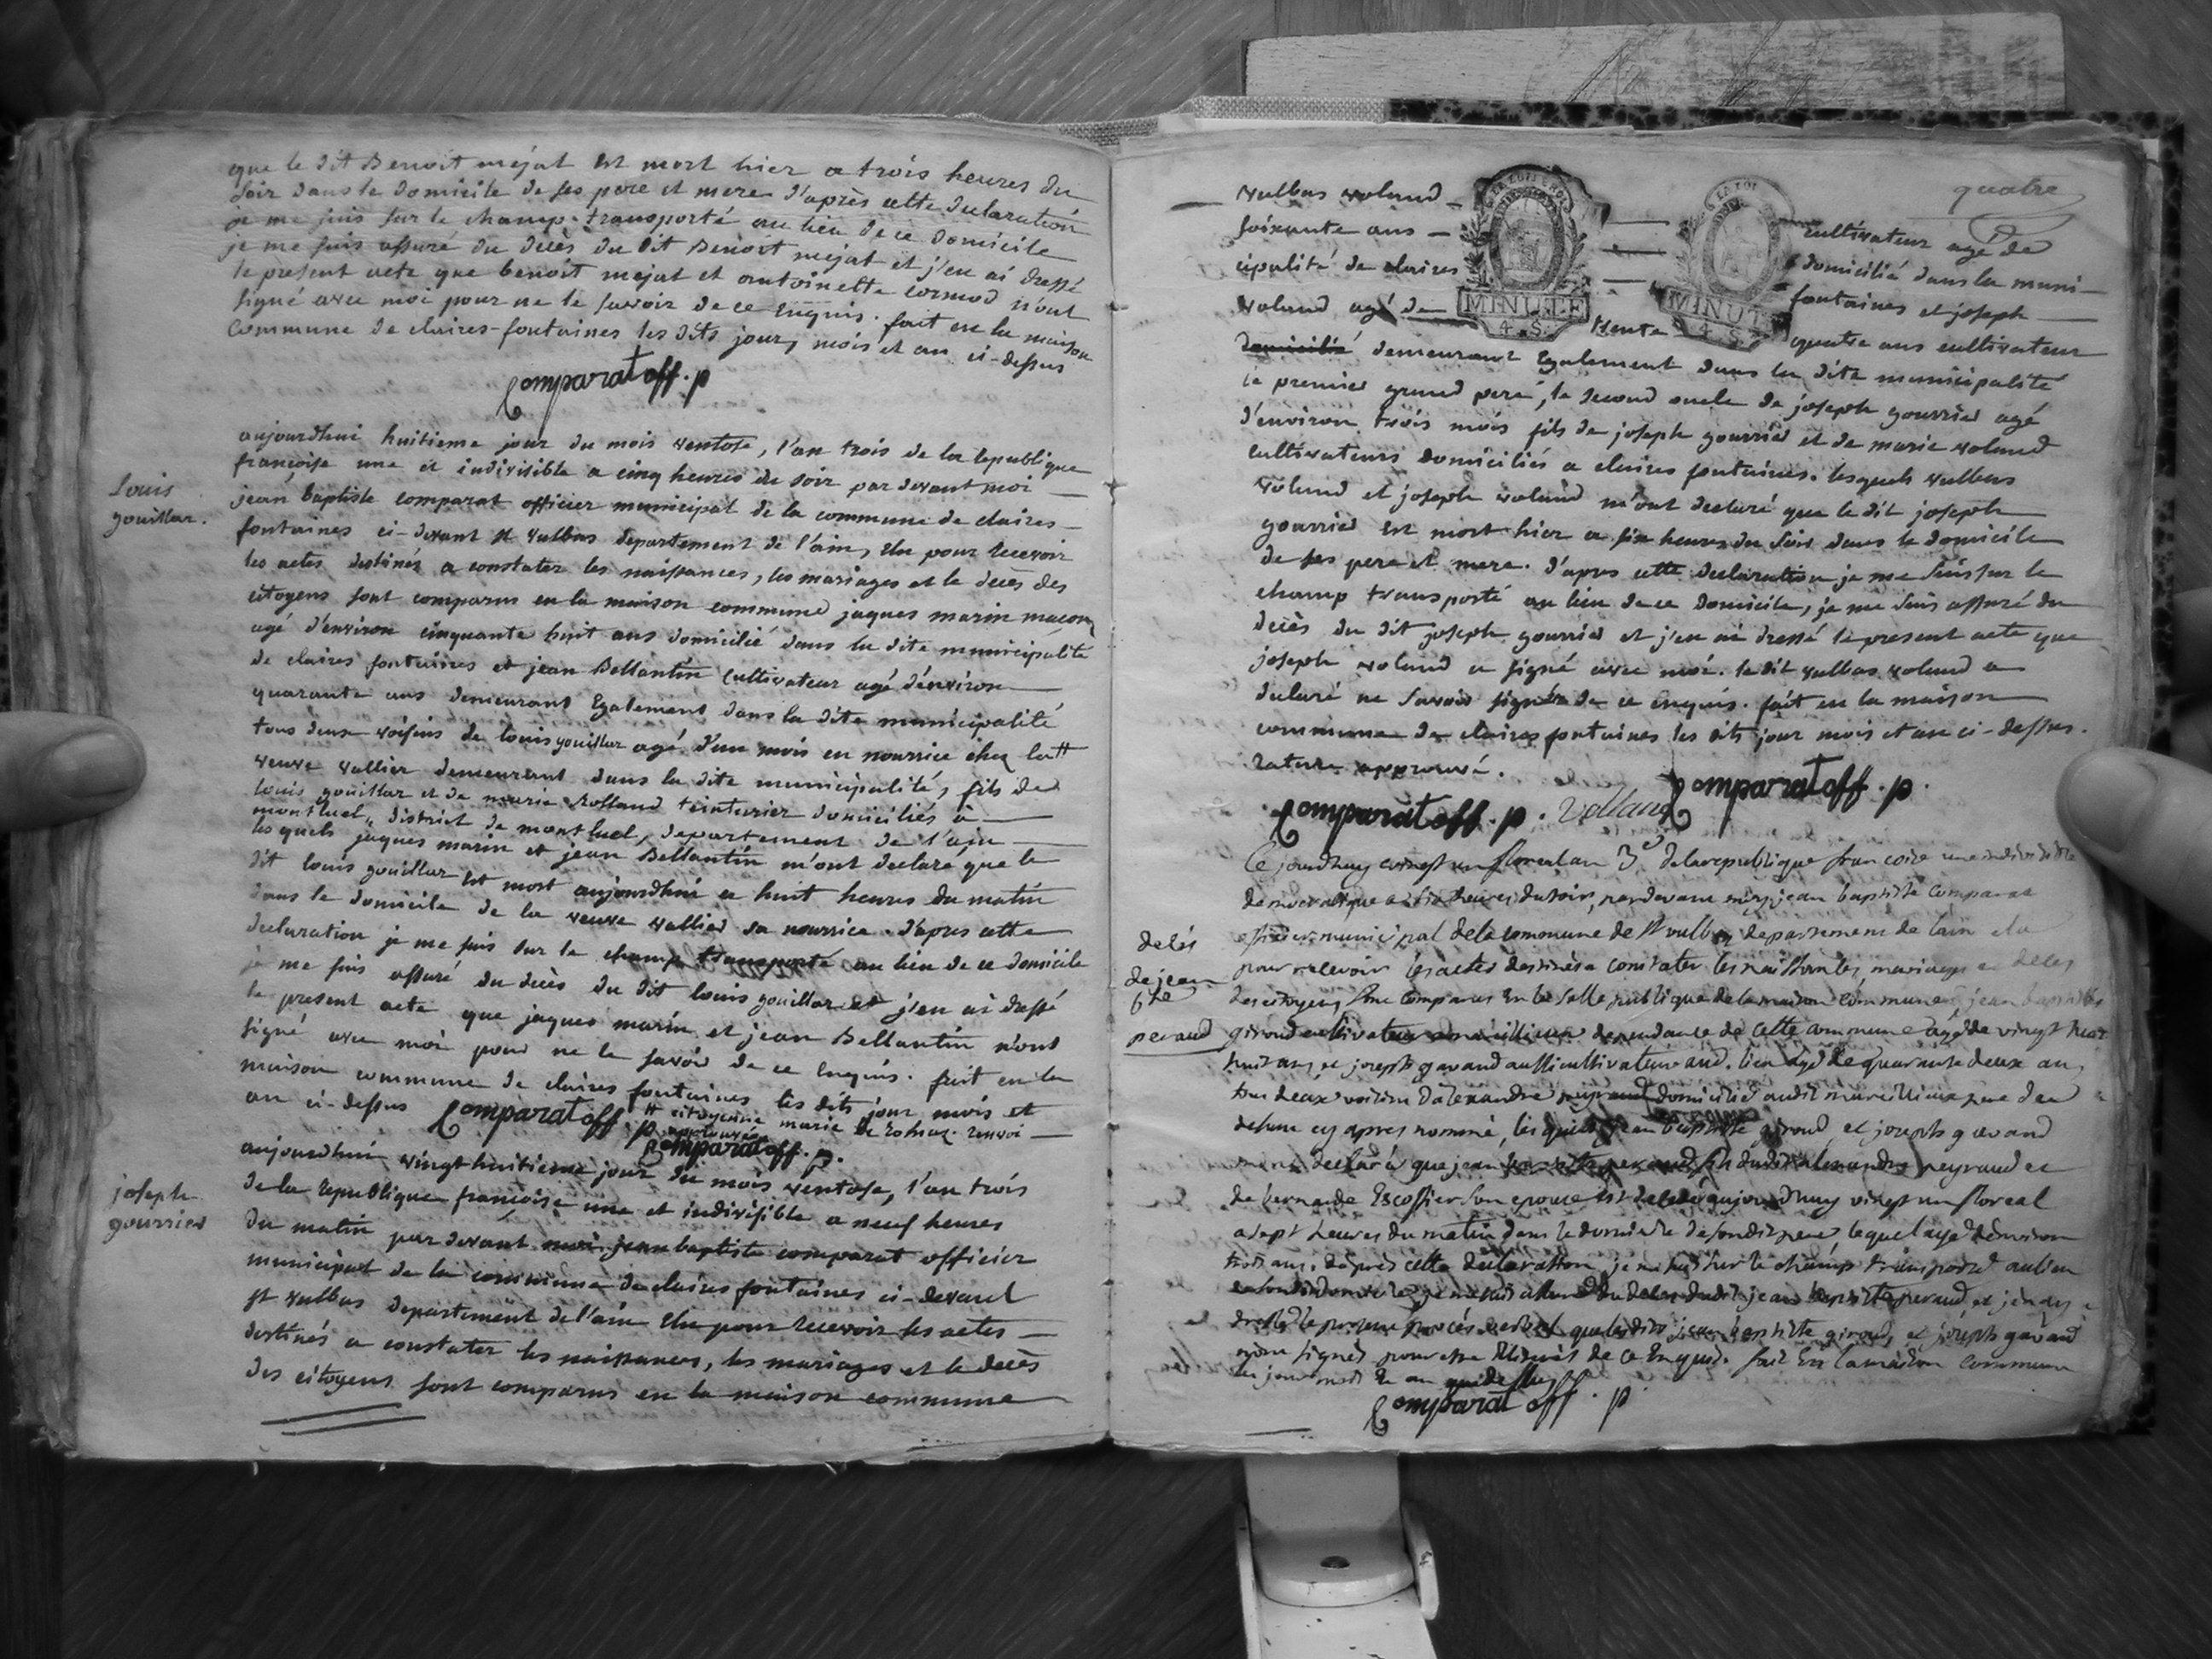 que le dit Benoit mejat est mort hier a trois heures du
soir dans le domicile de ses pere et mere d'après cette declaration
je me suis sur le champ transporté au lieu de ce domicile
je me suis assuré du decès du dit Benoit mejat et j'en ai dressé
le present acte que benoit mejat et antoinette cormod n'ont
signé avec moi pour ne le savoir de ce enquis. fait en la maison
commune de claires-fontaines les dits jour, mois et an ci-dessus
Comparat off. p
Louis
gouillar.
aujourdhui huitieme jour du mois ventose, l'an trois de la republique
françoise une et indivisible a cinq heures du soir par devant moi
jean baptiste comparat officier municipal de la commune de claires-
fontaines ci-devant st vulbas departement de l'ain, elu pour recevoir
les actes destinés a constater les naissances, les mariages et le decès des
citoyens sont comparus en la maison commune jaques marin macon
agé d'environ cinquante huit ans domicilié dans la dite municipalité
de claires fontaines et jean Bellantin cultivateur agé d'environ
quarante ans demeurant Egalement dans la dite municipalité
tous deux voisins de louis gouillar agé d'un mois en nourrice chez la #
veuve vallier demeurant dans la dite municipalité, fils de
louis gouillar et de marie Rolland teinturier domiciliés à
montluel, district de montluel, departement de l'ain
les quels jaques marin et jean Bellantin m'ont declaré que le
dit louis gouillar est mort aujourdhui a huit heures du matin
dans le domicile de la veuve vallier sa nourrice. d'apres cette
declaration je me suis sur le champ transporté au lieu de ce domicile
je me suis assuré du decès du dit louis gouillar et j'en ai dressé
le present acte que jaques marin et jean Bellantin n'ont
signé avec moi pour ne le savoir de ce enquis. fait en la
maison commune de claires fontaines les dits jour mois et
an ci-dessus Comparat off. p # citoyenne marie renvoi
approuvée
Comparat off. p.
joseph
gourrier
aujourdhui vingt huitieme jour du mois ventose, l'an trois
de la republique françoise une et indivisible a neuf heures
du matin par devant moi jean baptiste comparat officier
municipal de la commune de claires fontaines ci-devant
st vulbas departement de l'ain elu pour recevoir les actes
destinés a constater les naissances, les mariages et le decès
des citoyens sont comparus en la maison commune
quatre
vulbas voland cultivateur agé de
soixante ans domicilié dans la muni-
cipalité de claires fontaines et joseph
voland agé de trente quatre ans cultivateur
MINUTE
4. S.
MINUTE
4. S.
domicilié demeurant Egalement dans la dite municipalité
le premier grand pere, le second oncle de joseph gourrier agé
d'environ trois mois fils de joseph gourrier et de marie voland
cultivateurs domiciliés a claires fontaines. lesquels vulbas
voland et joseph voland m'ont declaré que le dit joseph
gourrier est mort hier a six heures du soir dans le domicile
de ses pere et mere. d'apres cette declaration je me suis sur le
champ transporté au lieu de ce domicile, je me suis assuré du
decès du dit joseph gourrier et j'en ai dressé le present acte que
joseph voland a signé avec moi. le dit vulbas voland a
declaré ne savoir signer de ce enquis. fait en la maison
commune de claires fontaines les dits jour mois et an ci-dessus.
rature approuvé.
Comparat off. p. Volland Comparat off. p.
delès
de jean
bte
peraud
Ce jourdhuy vingt un floreal an 3e de la republique francoise une indivisible
democratique a six heures du soir, pardevant moy jean baptiste Comparat
officier municipal de la commune de St vulbas departement de lain elu
pour recevoir les actes destinés a constater les naissances, mariages et deces
des citoyens, sont comparus En la salle publique de la maison commune jean baptiste
giroud cultivateur a marcillieux dependance de cette commune agé de vingt huit
huit ans, et joseph gavand aussi cultivateur aud. lieu agé de quarante deux ans
tous deux voisins d'alexandre peyraud domicilié audit marcillieux pere de
defunt cy apres nommé, lesquels jean baptiste giroud et joseph gavand
m'ont declaré que jean baptiste peraud fils dudit alexandre peyraud et
de bernarde Escoffier son epouse est decedé aujourdhuy vingt un floreal
a sept heures du matin dans le domicile de sondit pere, lequel agé denviron
trois ans. dapres cette declaration, je me suis sur le champ transporté au lieu
de sondit domicile je me suis assuré du deces dudit jean baptiste peraud et j'en ay
dressé le present procés verbal que lesdits jean baptiste giroud, et joseph gavand
n'ont signés pour etre Illiterés de ce Enquis. fait En la maison commune
les jour mois et an que dessus
Comparat off. p